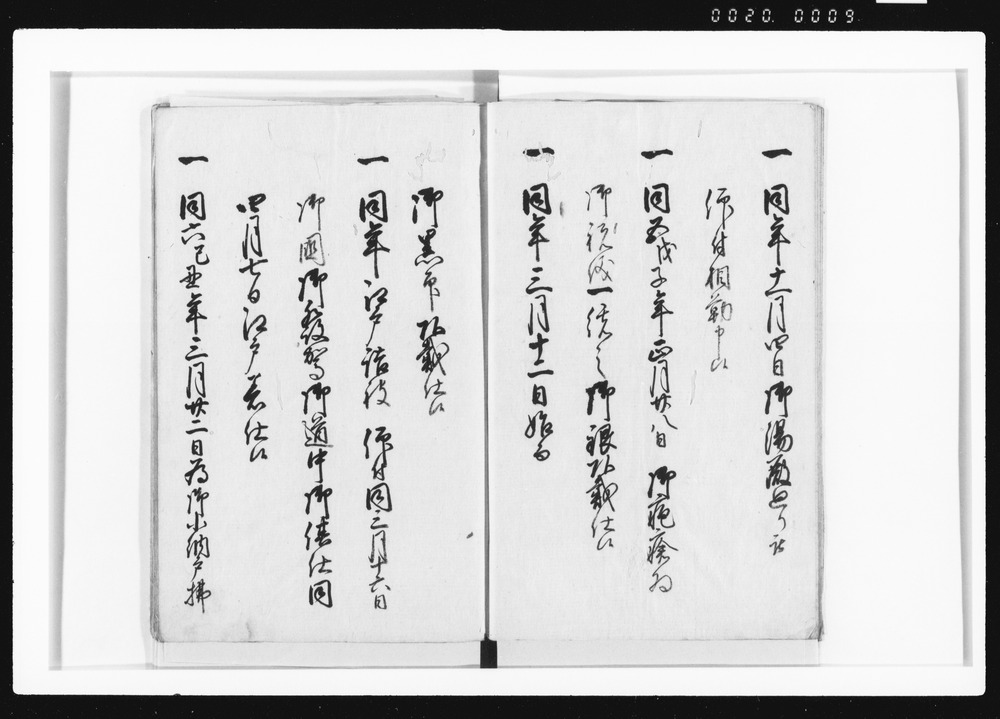 0020. 0009
一 同年十一月四日御湯殿廻り被
仰付相勤申候
一 同五戊子年正月廿八日 御疱瘡為
御祝儀一統之御銀頂戴仕候
一 同年三月十二日始而
御黒印頂戴仕候
一 同年江戸詰被 仰付同三月十六日
御國御發駕御道中御供仕同
四月七日江戸着仕候
一 同六己丑年三月廿二日為御小納戸拂